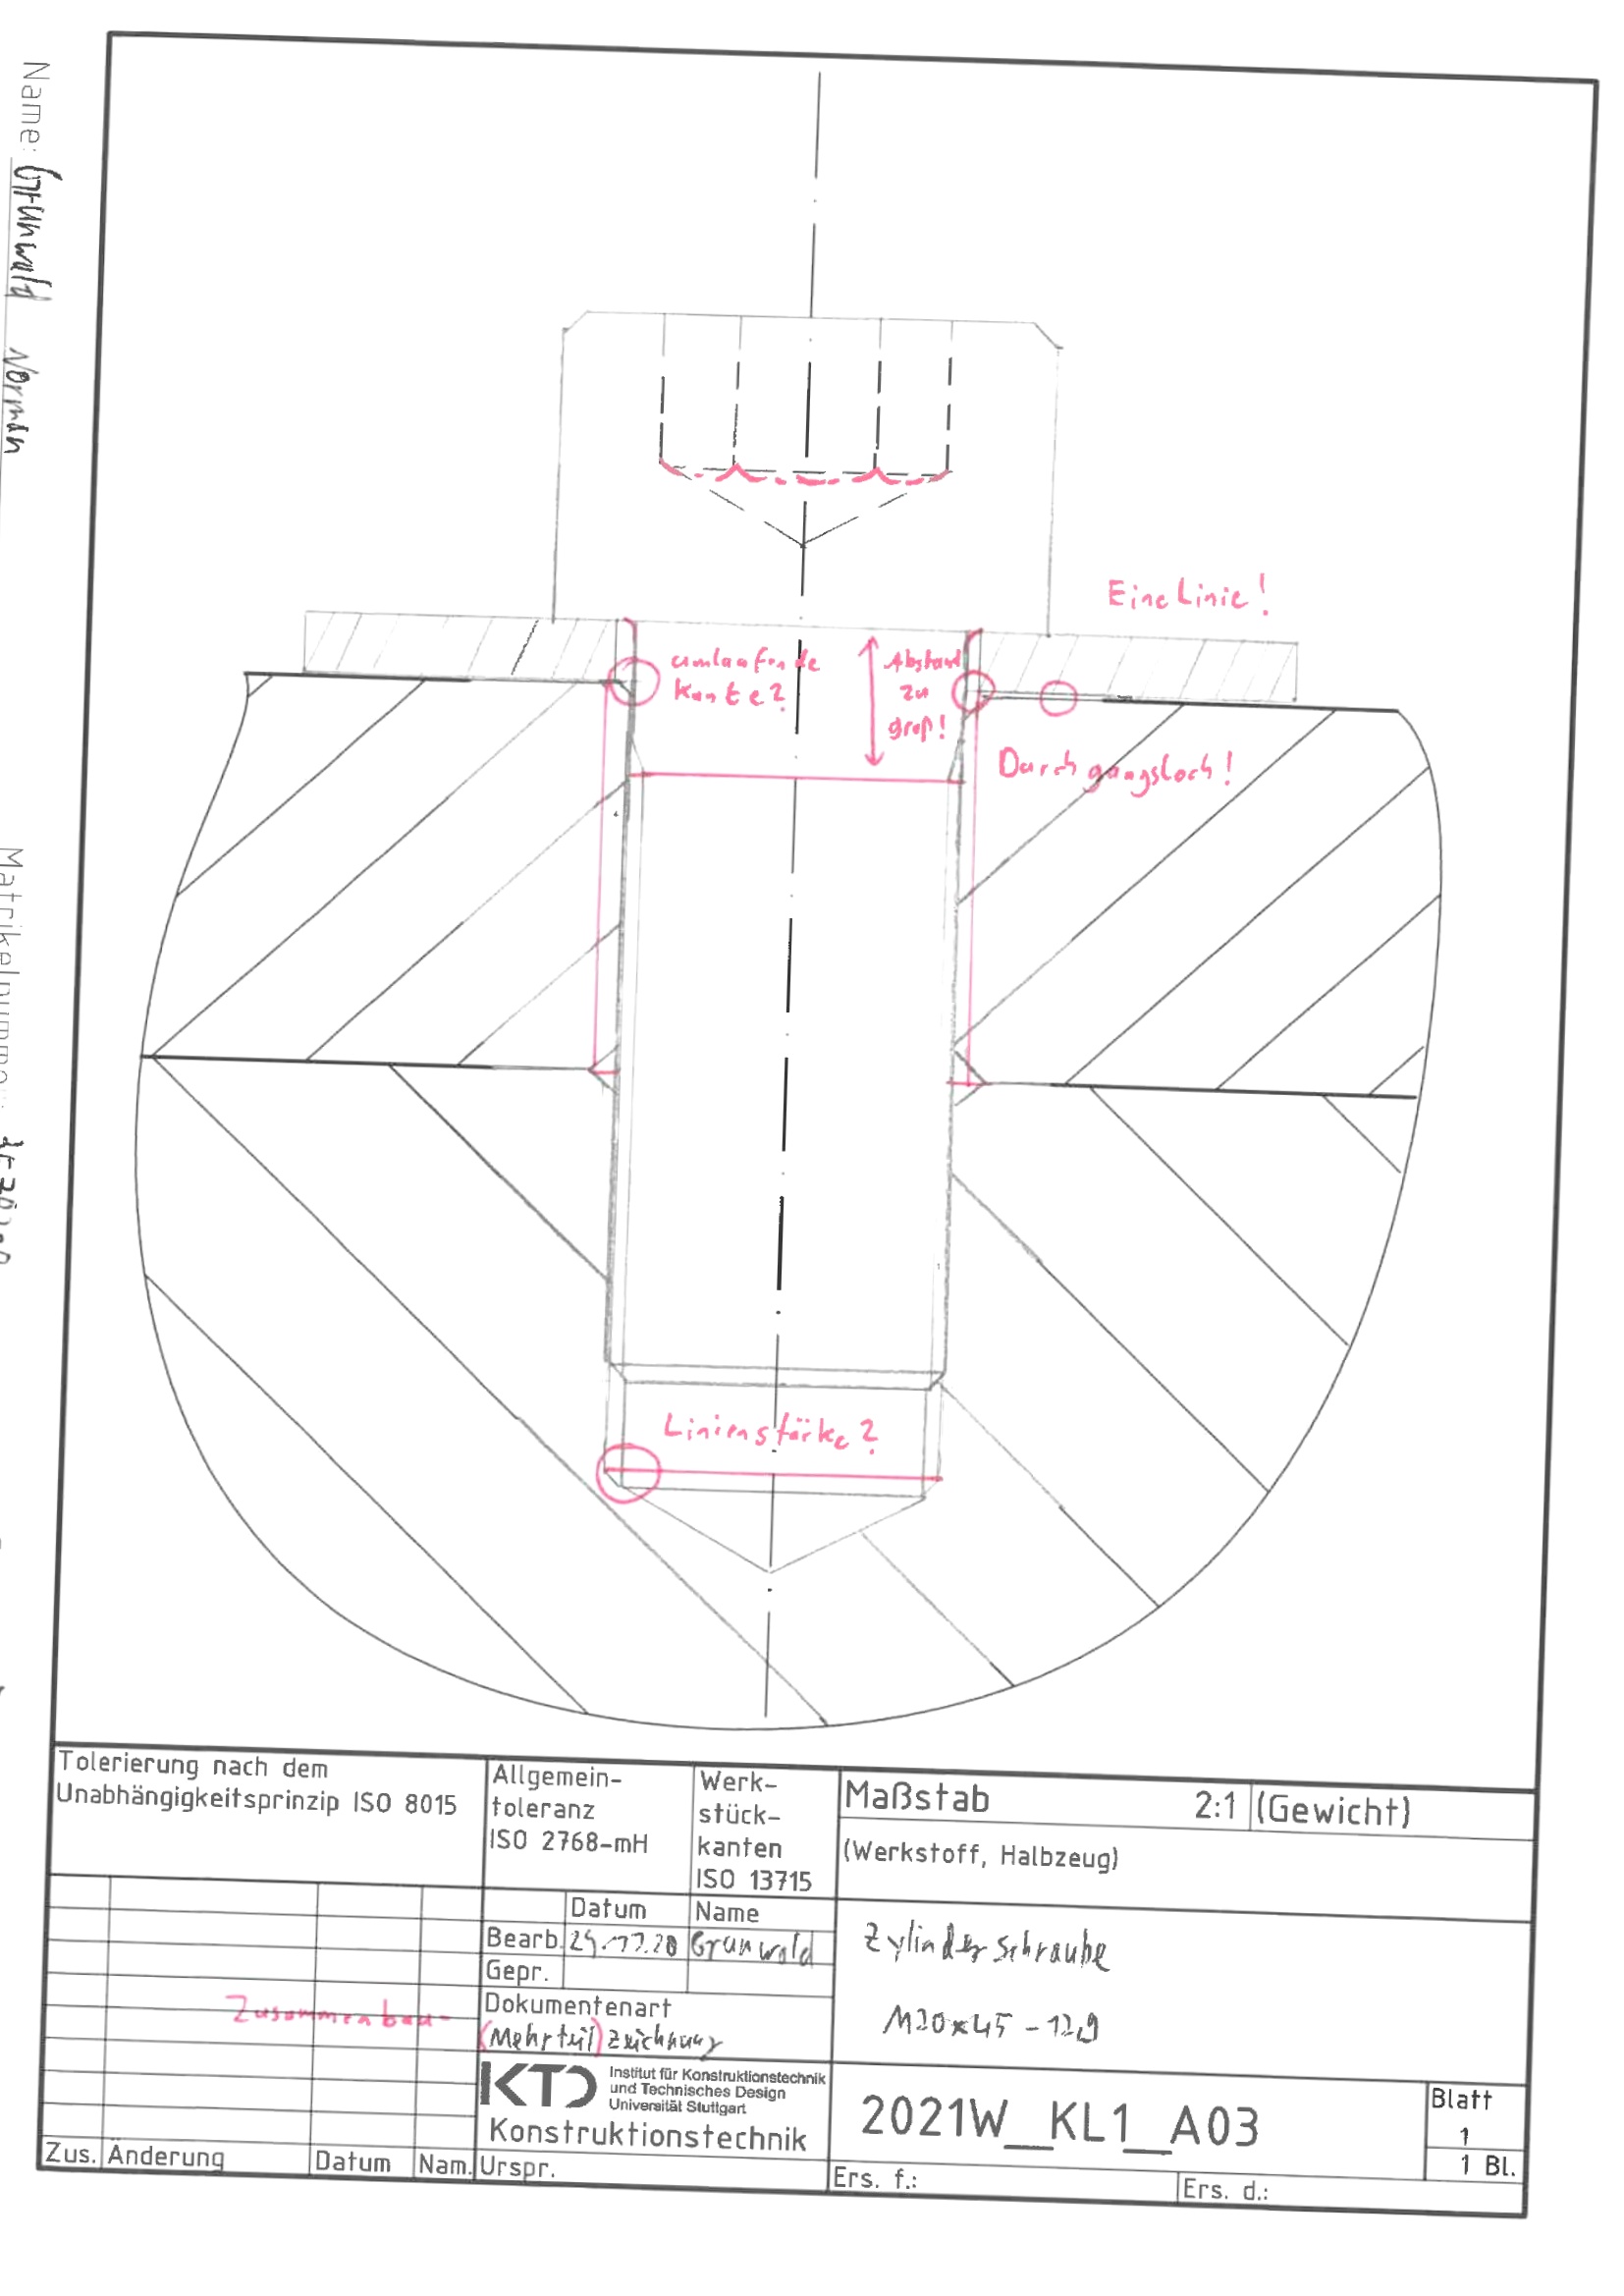 Name: Grunwald Norman
Eine Linie!
umlaufende
Kante?
Abstand
zu
groß!
Durchgangsloch!
Linienstärke?
Tolerierung nach dem
Unabhängigkeitsprinzip ISO 8015
Allgemein-
toleranz
ISO 2768-mH
Werk-
stück-
kanten
ISO 13715
Maßstab 2:1 (Gewicht)
(Werkstoff, Halbzeug)
Datum Name
Bearb. Grunwald
Gepr.
Zylinderschraube
M20x45-12.9
Dokumentenart
Zusammenbau-
(Mehrteil)zeichnung
KTD
Institut für Konstruktionstechnik
und Technisches Design
Universität Stuttgart
Konstruktionstechnik
2021W_KL1_A03
Blatt
1
1 Bl.
Zus. Änderung Datum Nam. Urspr.
Ers. f.: Ers. d.: